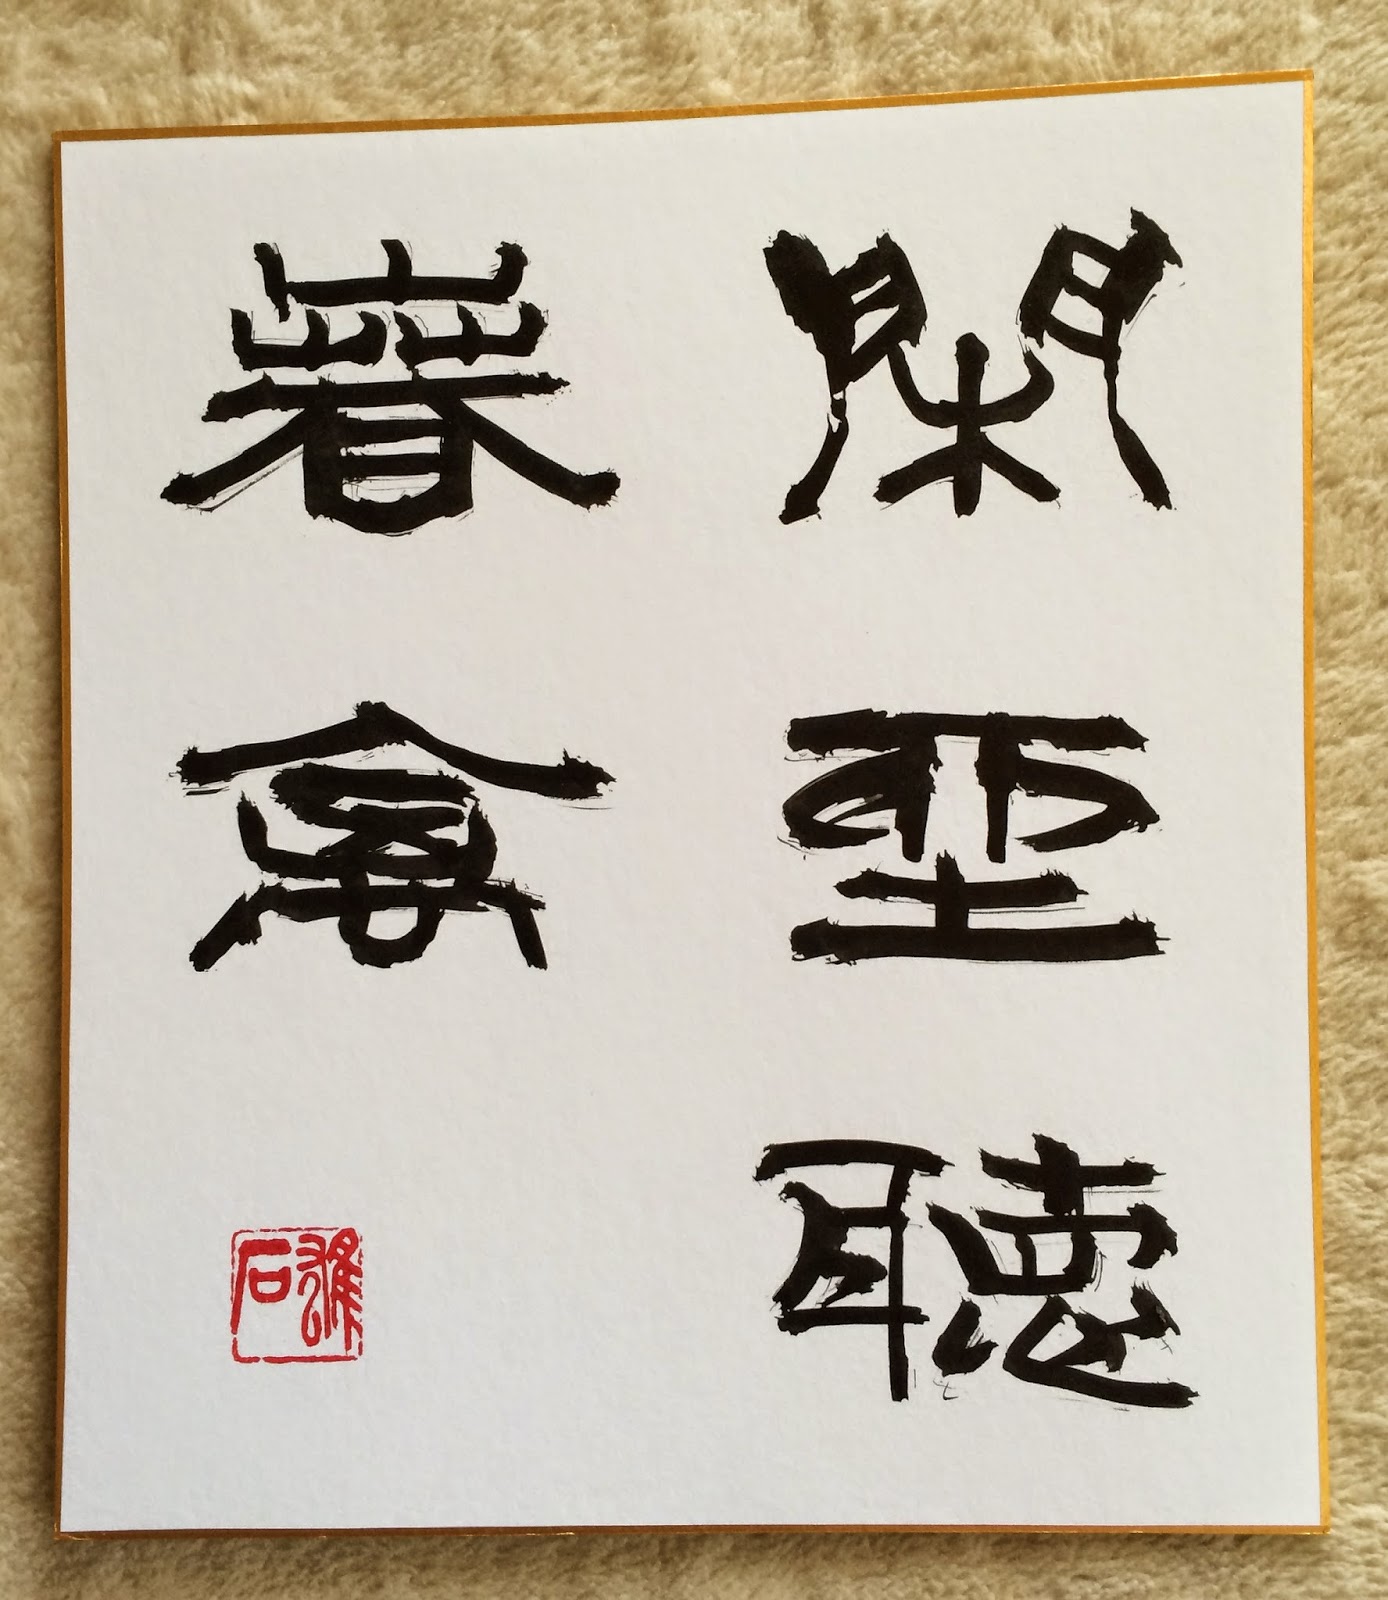 閑坐聴
春禽
石